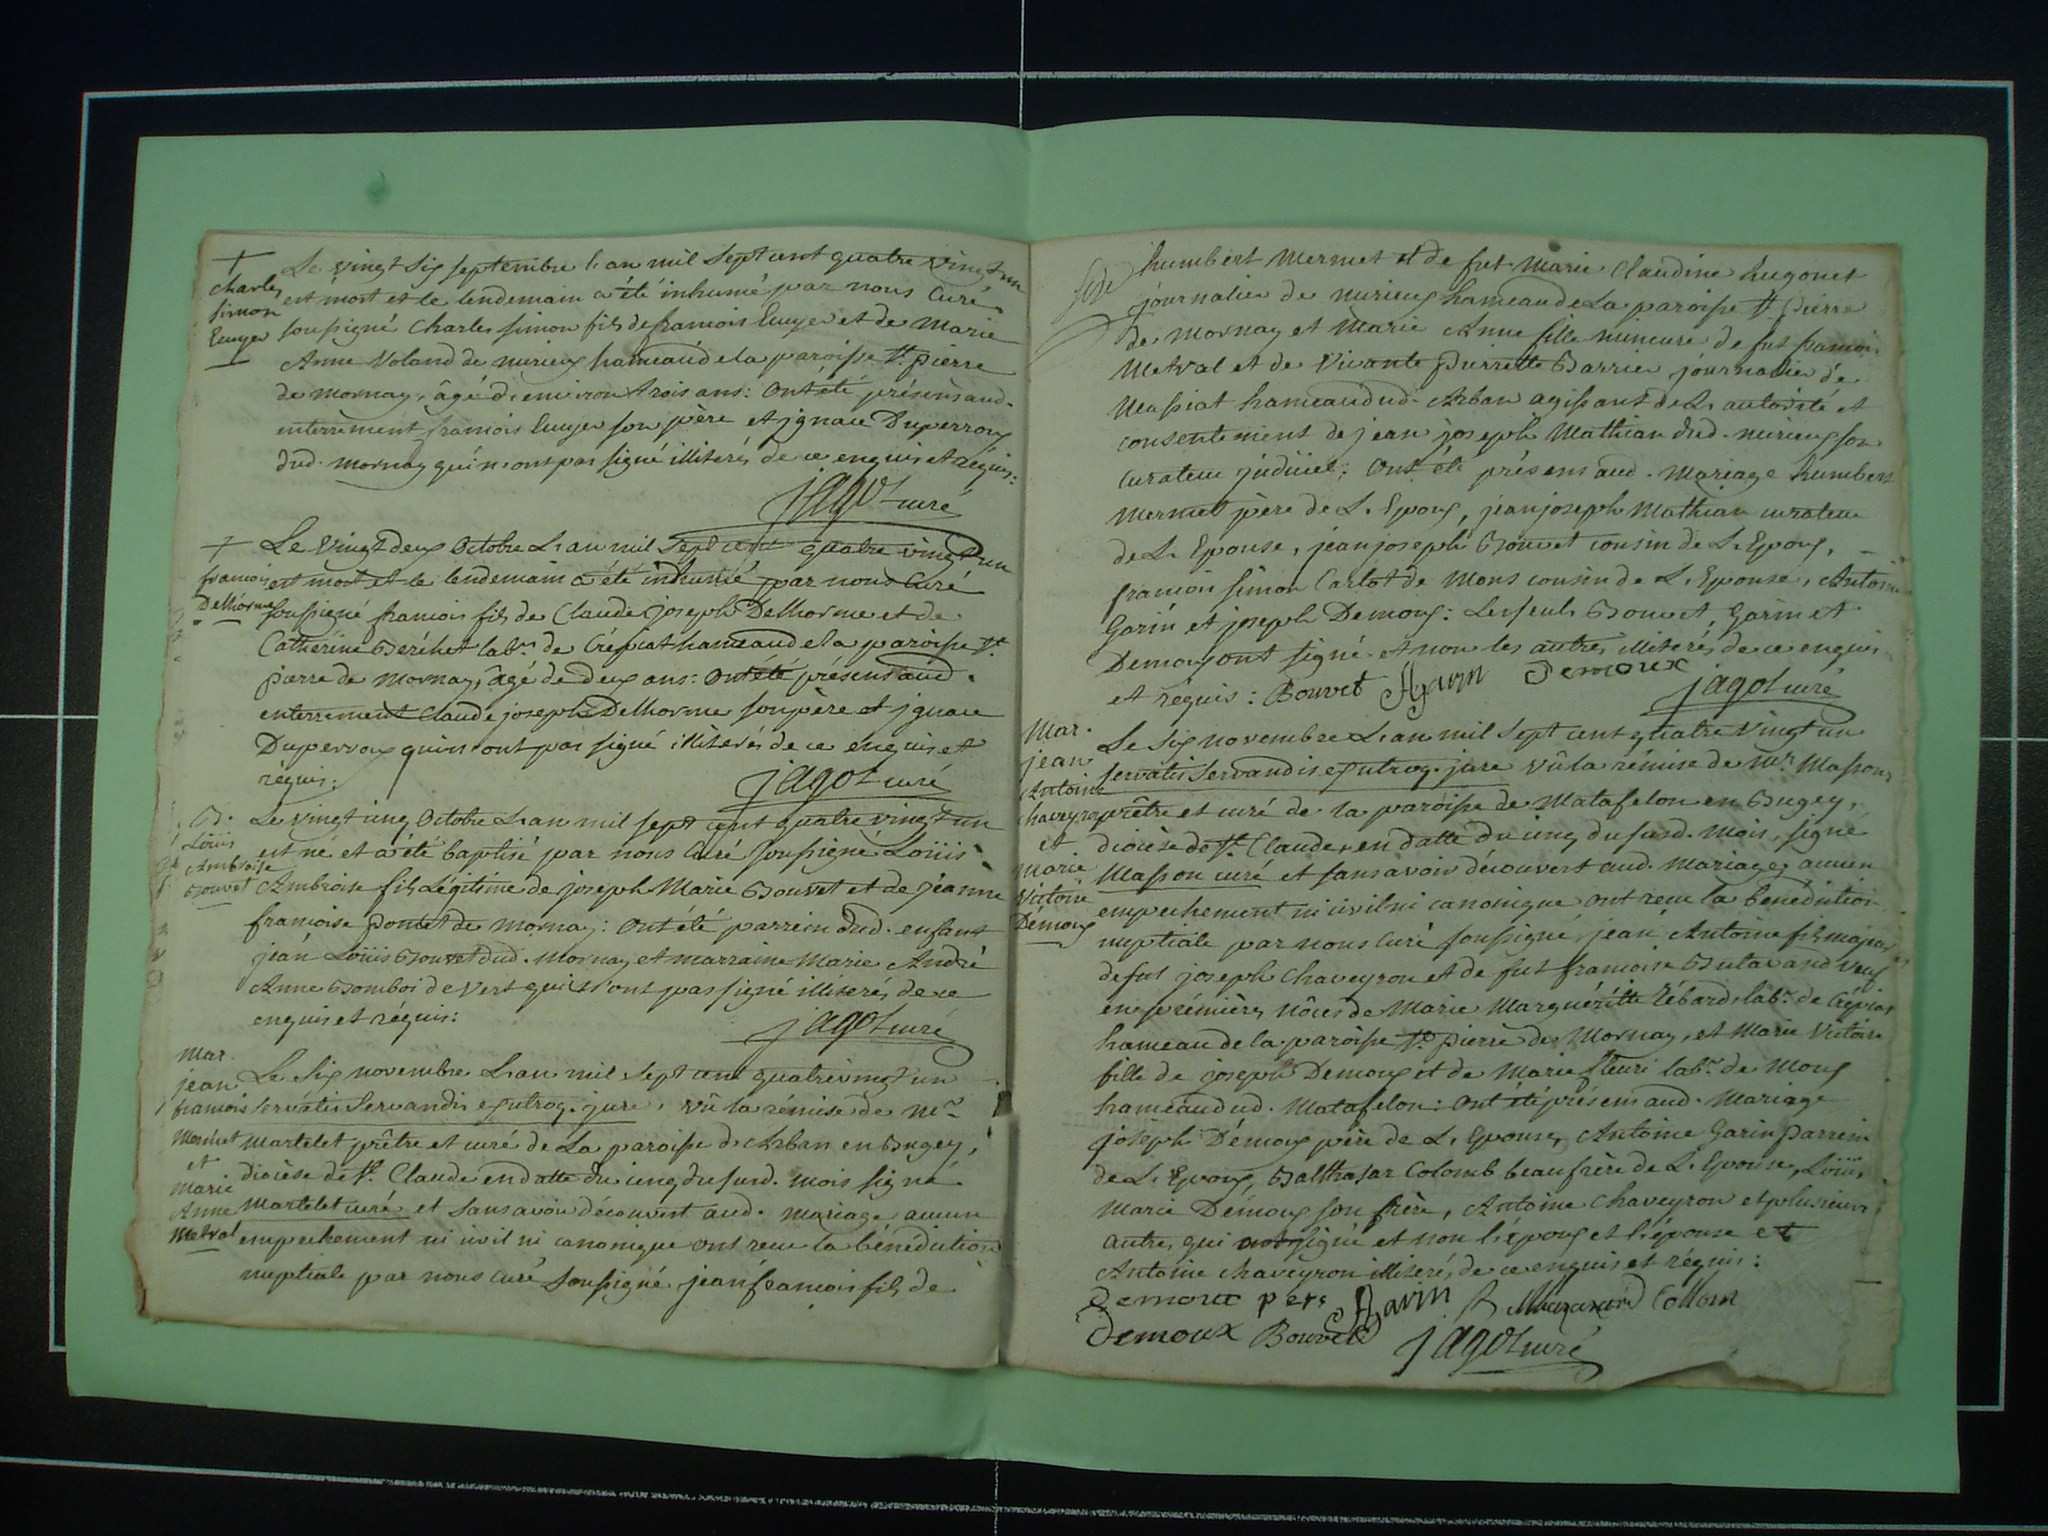 +
charles
simon
Ecuyer
Le vingt six septembre l'an mil sept cent quatre vingt un
est mort et le lendemain a été inhumé par nous Curé
soussigné charles simon fils de francois Ecuyer et de Marie
Anne Voland de nurieux hameau de la paroisse St. pierre
de mornay, âgé d'environ trois ans: ont été présens aud.
enterrement francois Ecuyer son père et ignace Duperroux
dud. mornay qui n'ont pas signé illiterés de ce enquis et réquis:
jagot curé
+
francois
Delhorme
Le vingt deux Octobre L'an mil sept cent quatre vingt un
est mort et le lendemain a été inhumé par nous Curé
soussigné francois fils de Claude joseph Delhorme et de
Catherine Béréhet labr. de Crépiat hameau de la paroisse St.
pierre de mornay, âgé de deux ans: ont été présens aud.
enterrement Claude joseph Delhorme son père et ignace
Duperroux qui n'ont pas signé illiterés de ce enquis et
réquis:
jagot curé
B.
Loüis
Ambroise
Bouvet
Le vingt cinq Octobre L'an mil sept cent quatre vingt un
est né et a été baptisé par nous Curé soussigné Loüis
Ambroise fils légitime de joseph Marie Bouvet et de jeanne
francoise poncet de mornay: ont été parrein dud. enfant
jean Loüis Bouvet dud. Mornay et marraine Marie André
Anne Bomboi de Vert qui n'ont pas signé illiterés de ce
enquis et réquis:
jagot curé
Mar.
jean
francois
Mermet
et
Marie
Anne
Metral
Le six novembre L'an mil sept cent quatre vingt un
servatis servandis ex utroq. jure, vû la rémise de Mr.
Martelet prêtre et curé de La paroisse d'Arban en Bugey,
diocèse de St. Claude en datte du cinq du susd. mois signé
Martelet curé et sans avoir découvert aud. mariage aucun
empechement ni civil ni canonique ont recu la bénédiction
nuptiale par nous curé soussigné jean francois fils de
humbert Mermet et de fut Marie Claudine hugonet
journalier de nurieux hameau de La paroisse St. pierre
de Mornay et Marie Anne fille mineure de fut francois
Metral et de Vivante pierrette Barrier journalier de
Massiat hameau dud. Arban agissant de L'autorité et
consentement de jean joseph Mathian dud. nurieux son
curateur judiciel; ont été présens aud. Mariage humbert
Mermet père de L'Epoux, jean joseph Mathian curateur
de L'Epouse, jean joseph Bouvet cousin de L'Epoux,
francois simon Carlot de Mons cousin de L'Epouse, Antoine
Garin et joseph Demoux: Les seuls Bouvet, Garin et
Demoux ont signé et non les autres illiterés de ce enquis
et réquis: Bouvet AGarin Demoux
jagot curé
Mar.
jean
Antoine
chaveyron
et
Marie
Victoire
Demoux
Le six novembre L'an mil sept cent quatre vingt un
servatis servandis ex utroq. jure vû la rémise de Mr. Masson,
prêtre et curé de la paroisse de Matafelon en Bugey,
diocèse de St. Claude, en datte du cinq du susd. mois, signé
Masson curé et sans avoir découvert aud. mariage aucun
empechement ni civil ni canonique ont recu la bénédiction
nuptiale par nous curé soussigné, jean Antoine fils majeur
de fut joseph chaveyron et de fut francoise Butavand veuf
en prémières nôces de Marie Marguéritte Zébard, labr. de Crépiat
hameau de la paroisse St. pierre de Mornay, et Marie Victoire
fille de joseph Demoux et de Marie fleuri labr. de Mons
hameau dud. Matafelon: ont été présens aud. Mariage
joseph Démoux père de L'Epouse, Antoine Garin parrein
de L'Epoux, Balthasar Colomb beaufrère de L'Epouse, Loüis
Marie Démoux son frère, Antoine chaveyron et plusieurs
autres qui ont signé et non l'époux et l'épouse et
Antoine chaveyron illiterés de ce enquis et réquis:
Demoux pere AGavin Collom
Demoux Bouvet jagot curé